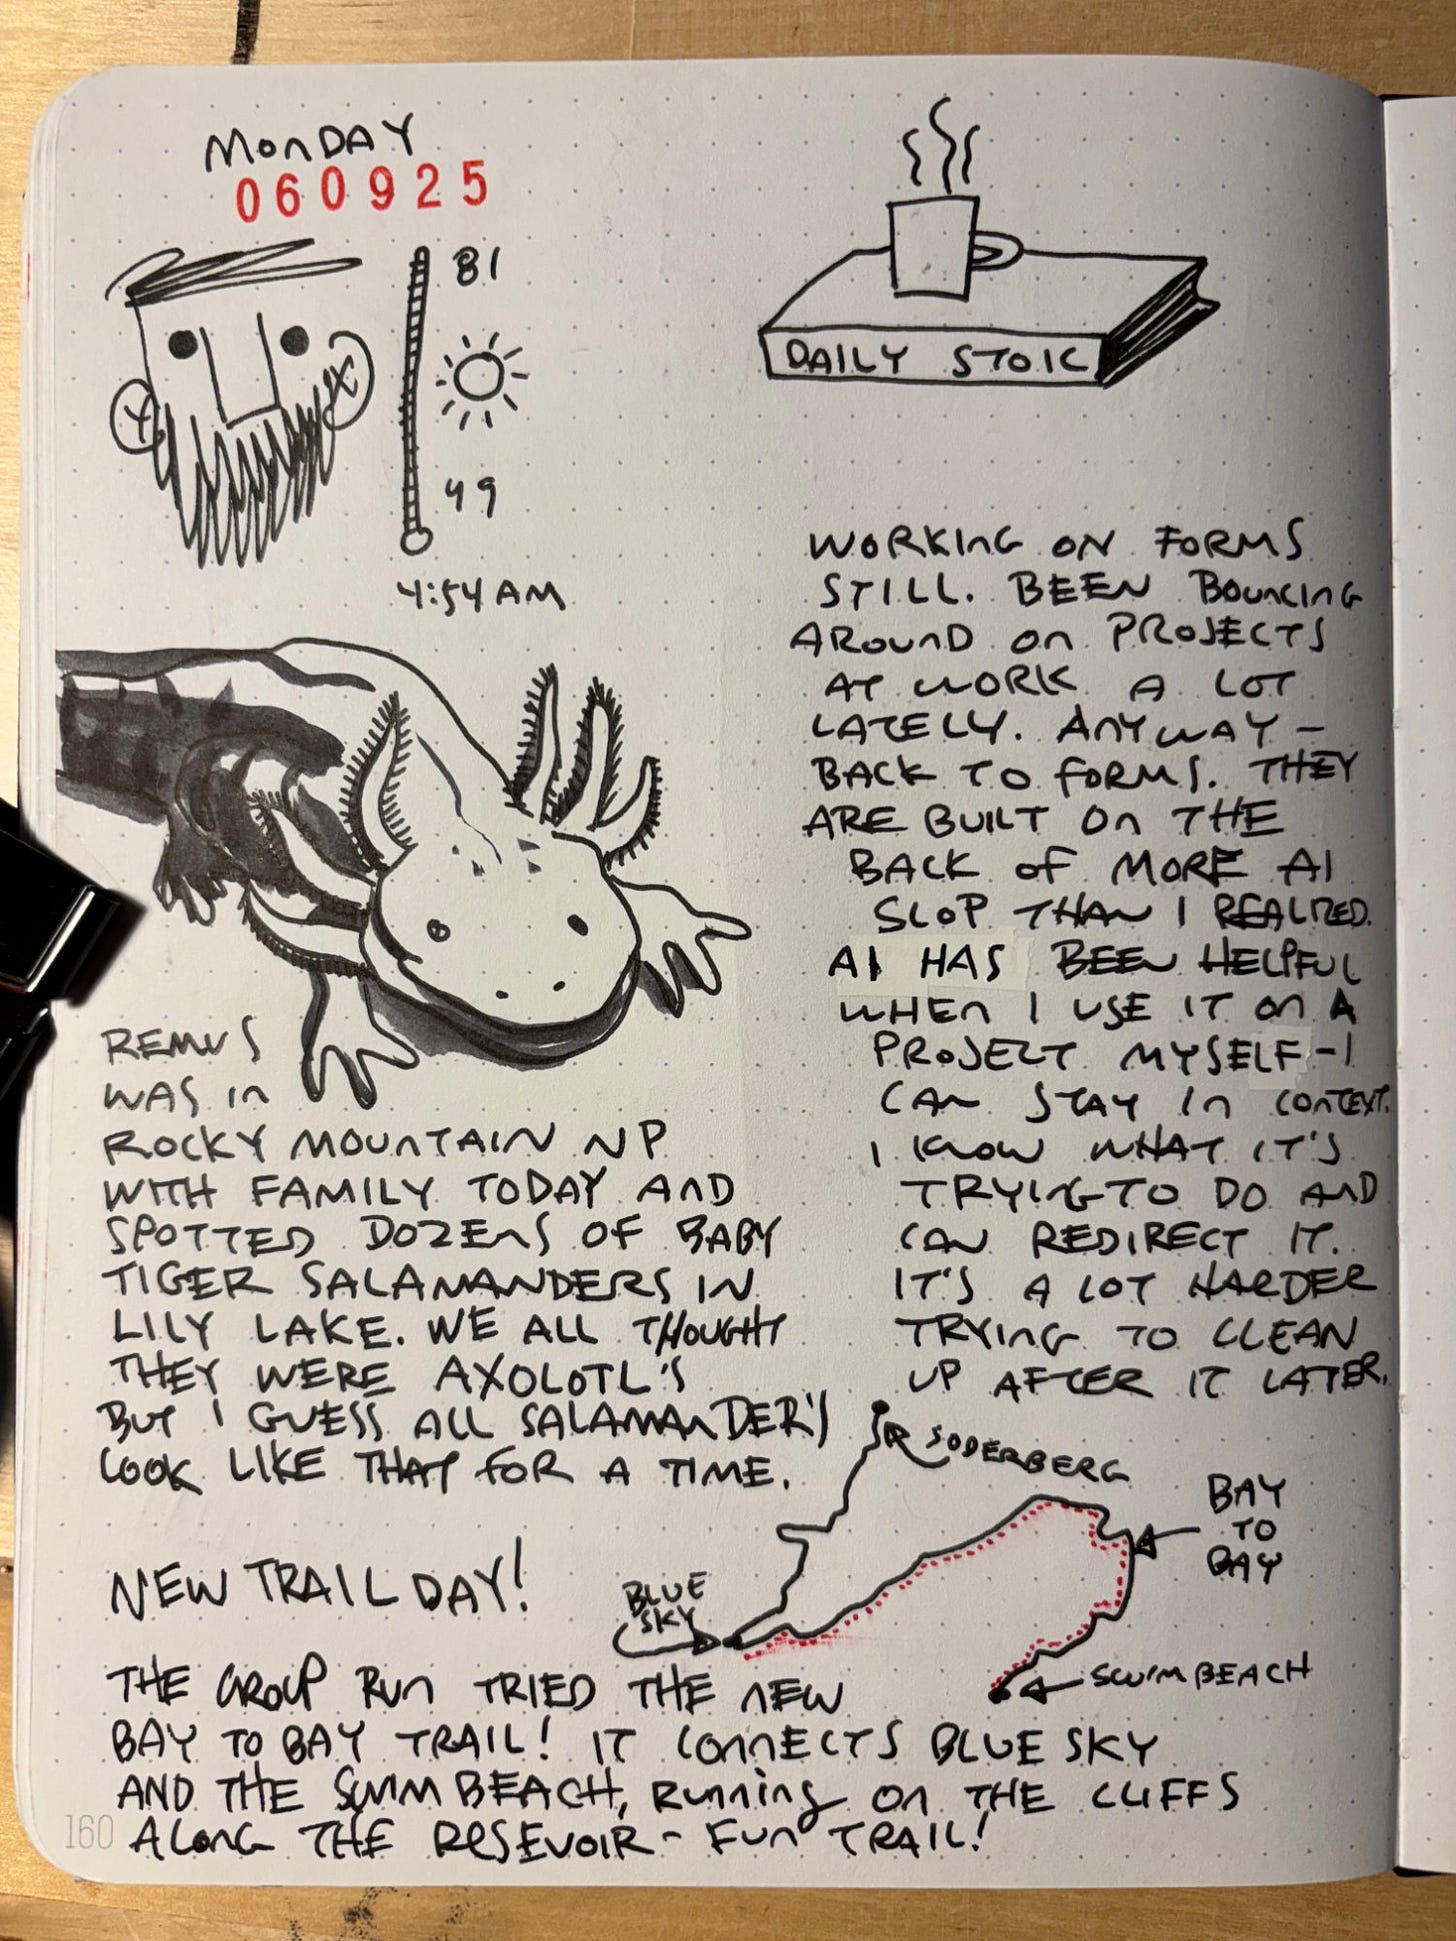 MONDAY
060925
81
49
4:54 AM
DAILY STOIC
REMUS
WAS IN
ROCKY MOUNTAIN NP
WITH FAMILY TODAY AND
SPOTTED DOZENS OF BABY
TIGER SALAMANDERS IN
LILY LAKE. WE ALL THOUGHT
THEY WERE AXOLOTL'S
BUT I GUESS ALL SALAMANDER'S
LOOK LIKE THAT FOR A TIME.
WORKING ON FORMS
STILL. BEEN BOUNCING
AROUND ON PROJECTS
AT WORK A LOT
LATELY. ANYWAY -
BACK TO FORMS. THEY
ARE BUILT ON THE
BACK OF MORE AI
SLOP THAN I REALIZED.
AI HAS BEEN HELPFUL
WHEN I USE IT ON A
PROJECT MYSELF - I
CAN STAY IN CONTEXT.
I KNOW WHAT IT'S
TRYING TO DO AND
CAN REDIRECT IT.
IT'S A LOT HARDER
TRYING TO CLEAN
UP AFTER IT LATER.
SODERBERG
BAY
TO
BAY
BLUE
SKY
SWIM BEACH
NEW TRAIL DAY!
THE GROUP RUN TRIED THE NEW
BAY TO BAY TRAIL! IT CONNECTS BLUE SKY
AND THE SWIM BEACH, RUNNING ON THE CLIFFS
ALONG THE RESEVOIR - FUN TRAIL!
160